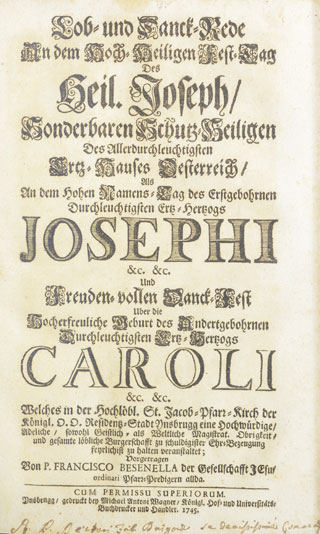 Lob- und Danck-Rede
An dem Hoch-Heiligen Fest-Tag
Des
Heil. Joseph/
Sonderbaren Schutz-Heiligen
Des Allerdurchleuchtigsten
Ertz-Hauses Oesterreich/
Als
An dem Hohen Namens-Tag des Erstgebohrnen
Durchleuchtigsten Ertz-Hertzogs
JOSEPHI
&c. &c.
Und
Freuden-vollen Danck-Fest
Uber die
Hocherfreuliche Geburt des Andertgebohrnen
Durchleuchtigsten Ertz-Hertzogs
CAROLI
&c. &c.
Welches in der Hochlöbl. St. Jacob-Pfarr-Kirch der
Königl. O. O. Residentz-Stadt Ynsbrugg eine Hochwürdige/
Adeliche/ sowohl Geistlich- als Weltliche Magistrat. Obrigkeit/
und gesamte löbliche Burgerschafft zu schuldigister Ehr-Bezeugung
feyrlichist zu halten veranstaltet;
Vorgetragen
Von P. FRANCISCO BESENELLA der Gesellschafft JEsu/
ordinari Pfarr-Predigern allda.
CUM PERMISSU SUPERIORUM.
Ynsbrugg/ gedruckt bey Michael Antoni Wagner/ Königl. Hof- und Universitäts-
Buchdrucker und Handler. 1745.